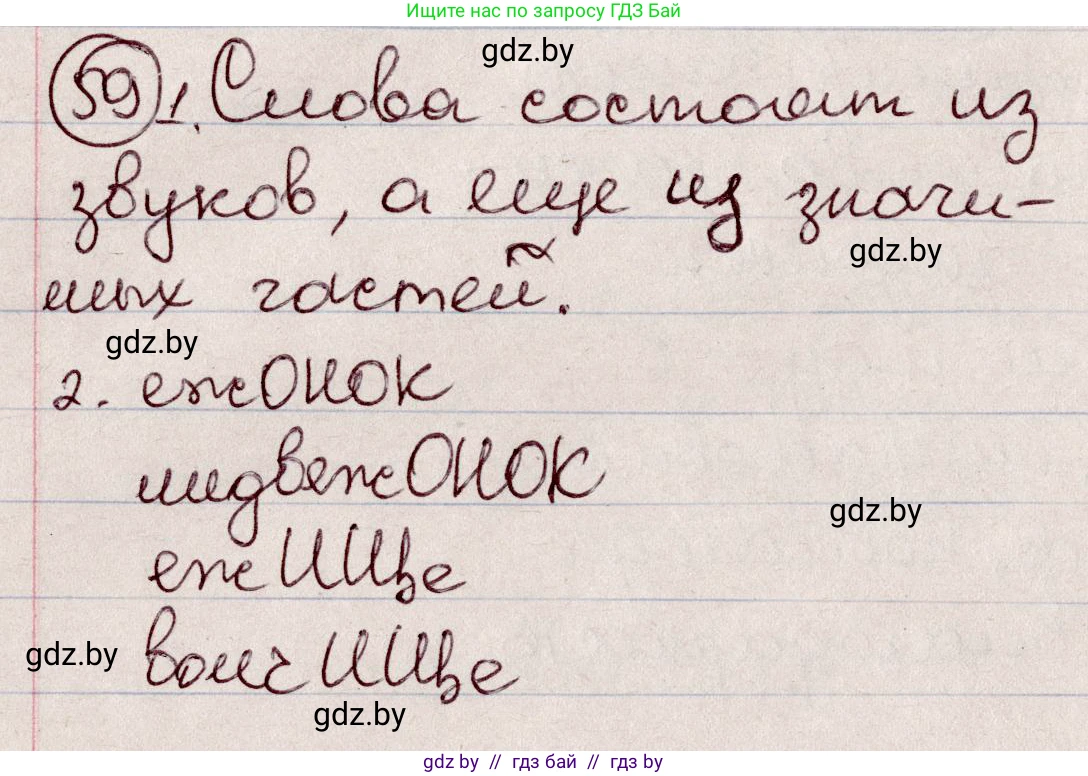 Ищите нас по запросу ГДЗ Бай
gdz.by
59 1. Слова состоят из
звуков, а еще из значи-
gdz.by
мых частей.
gdz.by
2. ежОНОК
мидвежОНОК
gdz.by
ежИЩе
gdz.by
волчИЩе
gdz.by
gdz.by // гдз бай // гдз by